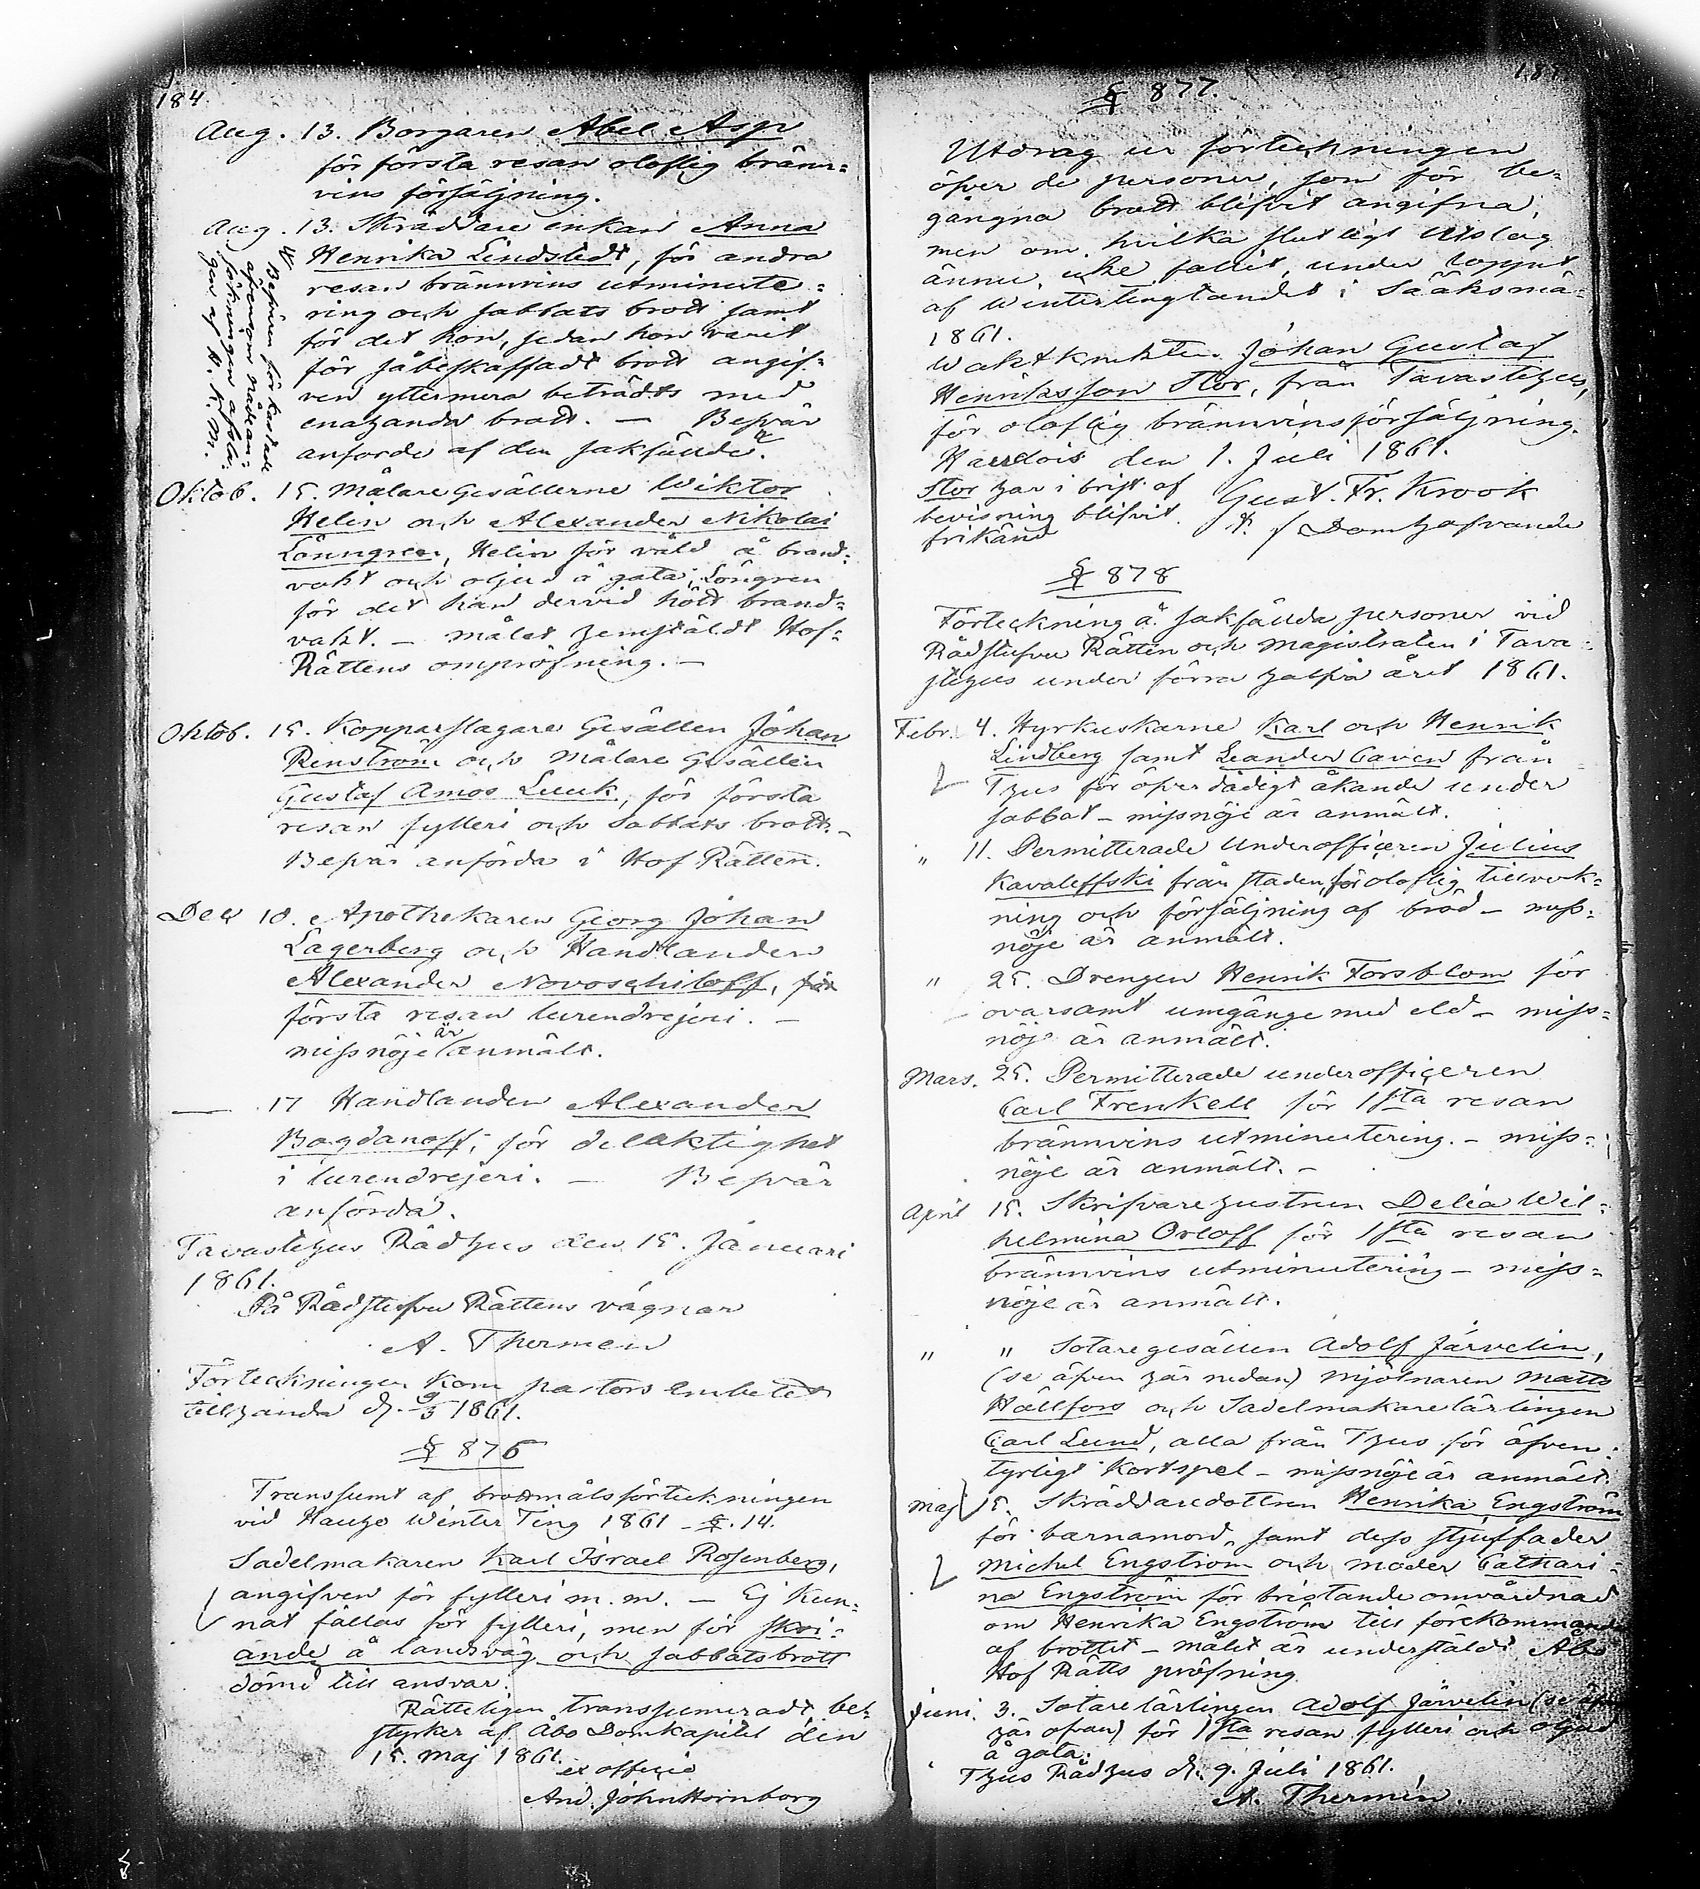 184.
Aug. 13. Borgaren Abel Asp
för första resan oloflig bränn=
vins försäljning.
Aug. 13. Skräddare enkan Anna
Henrika Lindstedt, för andra
resan brännvins utminute=
ring och sabbats brott samt
för det hon, sedan hon varit
för såbeskaffadt brott angif=
ven yttermera beträdts med
enahanda brott. — Besvär
anförde af den sakfällde.
Besvären förkastade
äfvensom nådean=
sökningen afsla=
gen af H. K. M.
Oktob. 15. Målare Gesällerne Wiktor
Helin och Alexander Nikolai
Lönngren, Helin för våld å brand=
vakt och oljud å gata, Löngren
för det han dervid hött brand=
vakt. — målet hemstäldt Hof=
Rättens ompröfning. —
Oktob. 15. Kopparslagare Gesällen Johan
Renström och Målare Gesällen
Gustaf Amos Luuk, för första
resan fylleri och Sabbats brott. —
Besvär anförda i Hof Rätten.
Dec 10. Apothekaren Georg Johan
Lagerberg och Handlanden
Alexander Novoschiloff, för
första resan lurendrejeri. —
missnöje är anmält.
— 17 Handlanden Alexander
Bogdanoff, för delaktighet
i lurendrejeri. — Besvär
anförda.
Tavastehus Rådhus den 15. Januari
1861.
På Rådstufvu Rättens vägnar
A. Thermen
Förteckningen kom pastors embetet
tillhanda d. 9/5 1861.
§ 876
Transsumt af brottmålsförteckningen
vid Hauho Winter Ting 1861 — §. 14.
Sadelmakaren Karl Israel Rosenberg,
angifven för fylleri m. m. — Ej kun=
nat fällas för fylleri, men för skri=
ande å landsväg och sabbatsbrott
dömd till ansvar.
Rätteligen transsumeradt, be=
styrker af Åbo Domkapitel den
15. Maj 1861.
ex officio
And. John Hornborg
§ 877.
Utdrag ur förteckningen
öfver de personer, som för be=
gångna brott blifvit angifna,
men om hvilka slutligt utslag
ännu icke fallit, under loppet
af Wintertingtandet i Sääksmä=
1861.
Waktknekten Johan Gustaf
Henriksson Stor, från Tavastehus,
för oloflig brännvinsförsäljning.
Hauhois den 1. Juli 1861.
Stor har i brist af
bevisning blifvit
frikänd
Gust. Fr. Krook
Domhafvande
§ 878
Förteckning å sakfällda personer vid
Rådstufvu Rätten och Magistraten i Tava=
stehus under förra halfva året 1861.
Febr. 4. Hyrkuskarne Karl och Henrik
Lindberg samt Leander Caven från
Thus för öfverdådigt åkande under
sabbat — missnöje är anmält.
" 11. Permitterade Underofficeren Julius
Kavaleffski från staden, för oloflig tillverk=
ning och försäljning af bröd — miss=
nöje är anmält.
" 25. Drengen Henrik Forsblom för
ovarsamt umgänge med eld — miss=
nöje är anmält.
Mars. 25. Permitterade underofficeren
Carl Frenkell för 1sta resan
brännvins utminutering. — miss=
nöje är anmält. —
April 15. Skrifvarehustrun Delia Wil=
helmina Orloff för 1sta resan
brännvins utminutering — miss=
nöje är anmält.
" " Sotaregesällen Adolf Järvelin,
(se äfven här nedan) mjölnaren Matts
Hällfors och Sadelmakare lärlingen
Carl Lund, alla från Thus för äfven=
tyrligt kortspel — missnöje är anmält.
Maj 15. Skräddaredottren Henrika Engström
för barnamord, samt dess stjuffader
Michel Engström och moder Cathari=
na Engström för bristande omvårdnad
om Henrika Engström till förekommande
af brottet — målet är understäldt Åbo
Hof Rätts pröfning.
Juni. 3. Sotarelärlingen Adolf Järvelin (se äfven
här ofvan) för 1sta resan fylleri och oljud
å gata.
Thus Rådhus d. 9. Juli 1861.
A. Thermén.